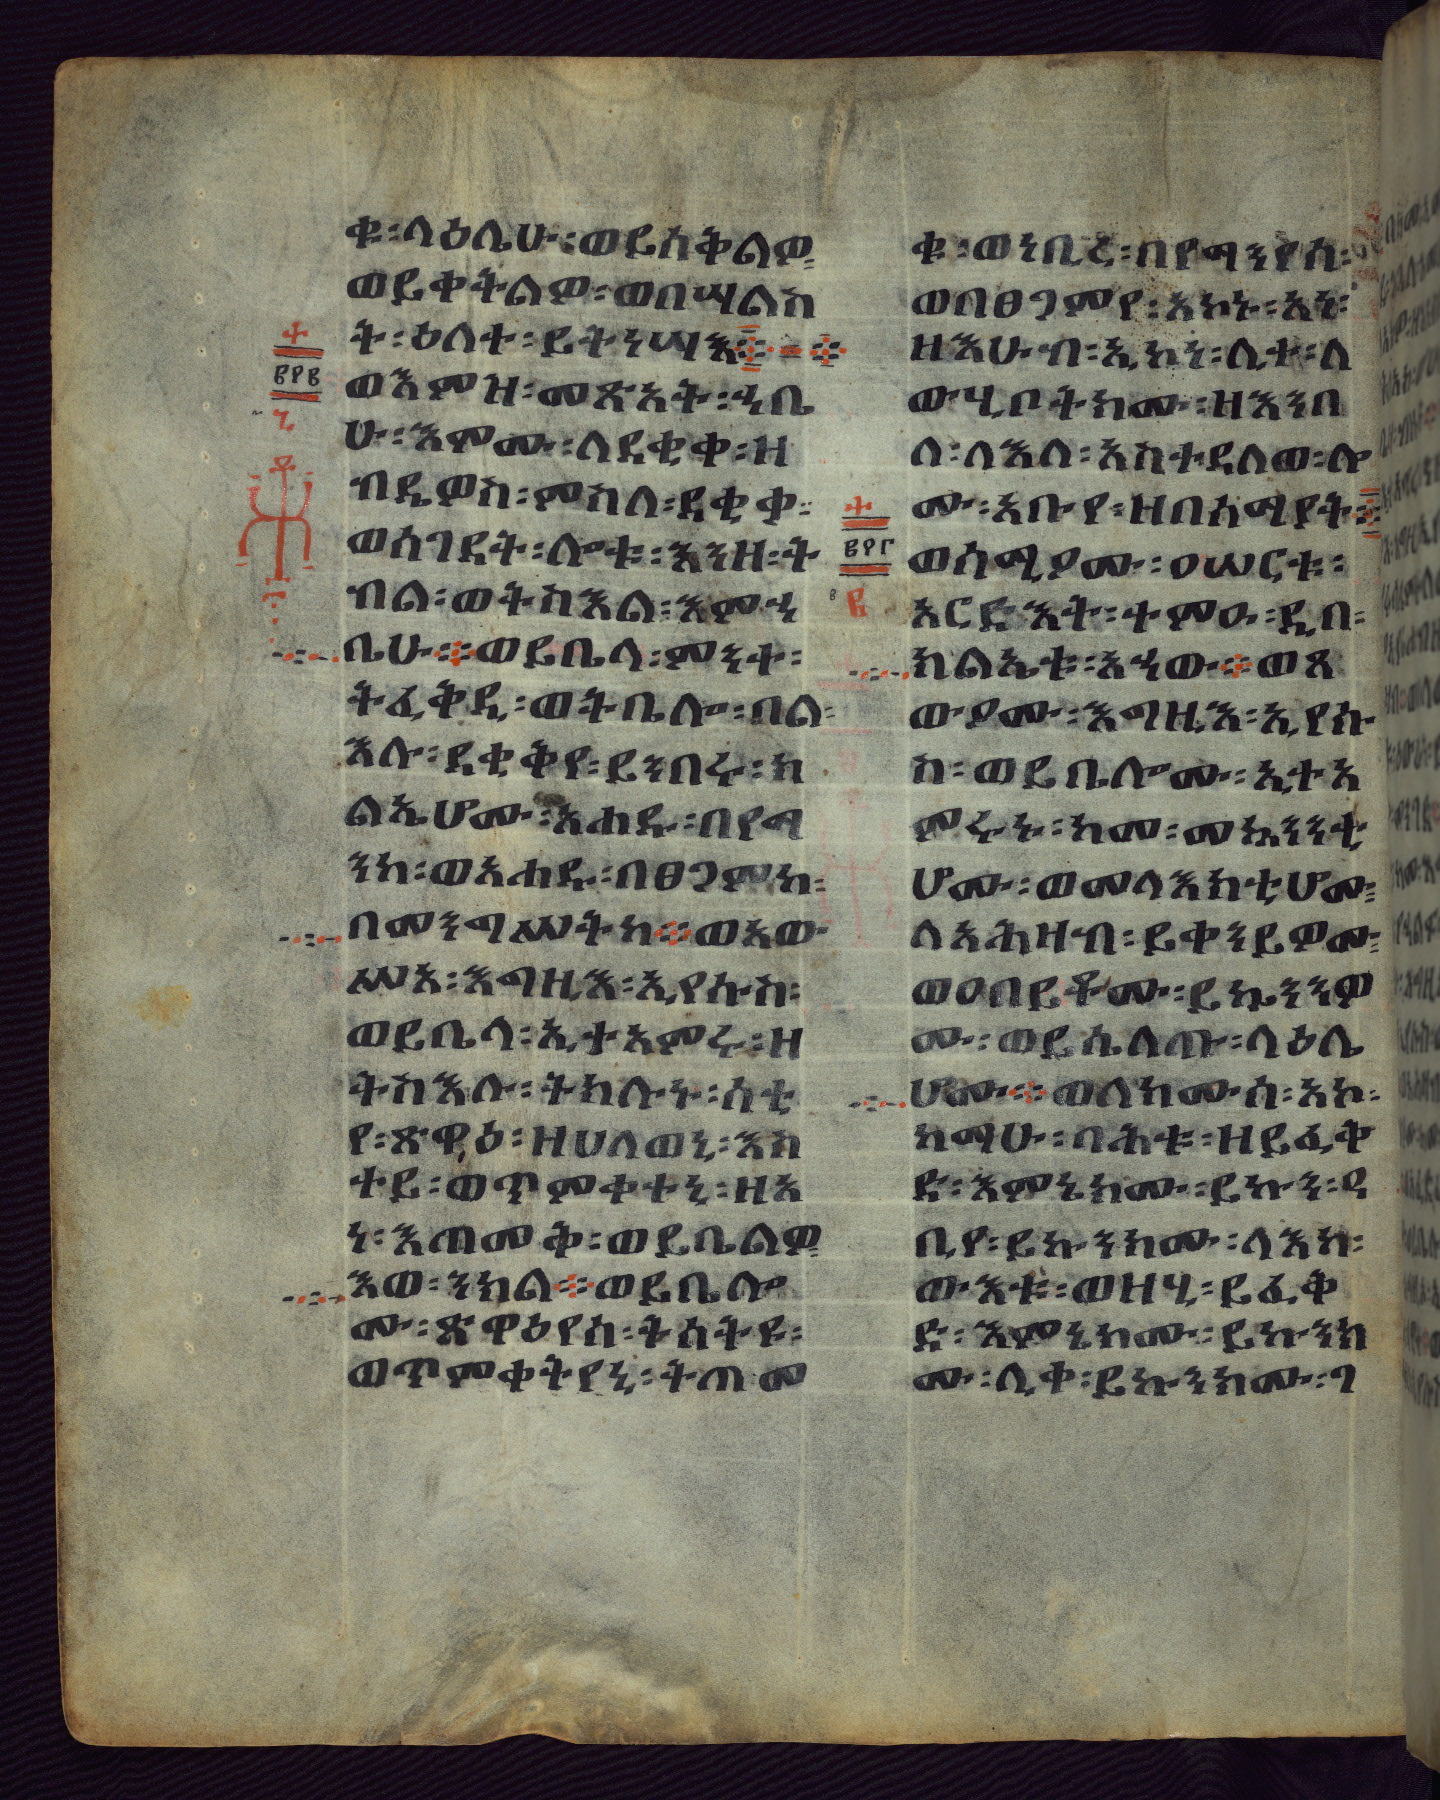 ቁ፡ላዕሌሁ፡ወይሰቅልዎ
ወይቀትልዎ፡ወበሣልስ
ት፡ዕለት፡ይትነሣእ
ወእምዝ፡መጽአት፡ኀቤ
ሁ፡እሞሙ፡ለደቂቀ፡ዘ
ብዴዎስ፡ምስለ፡ደቂቃ፡
ወሰገደት፡ሎቱ፡እንዘ፡ት
ብል፡ወትስእል፡እምኀ
ቤሁ፡ወይቤላ፡ምንተ፡
ትፈቅዲ፡ወትቤሎ፡በል፡
እሉ፡ደቂቅየ፡ይንበሩ፡ክ
ልኤሆሙ፡አሐዱ፡በየማ
ንከ፡ወአሐዱ፡በፀጋምከ፡
በመንግሥትከ፡ወአው
ሥአ፡እግዚእ፡ኢየሱስ፡
ወይቤላ፡ኢተአምሩ፡ዘ
ትስእሉ፡ትክሉኑ፡ሰቲ
የ፡ጽዋዕ፡ዘሀለወኒ፡እሰ
ተይ፡ወጥምቀተኒ፡ዘአ
ነ፡እጠመቅ፡ወይቤልዎ
እወ፡ንክል፡ወይቤሎ
ሙ፡ጽዋዕየሰ፡ትሰትዩ፡
ወጥምቀትየኒ፡ትጠመ
ቁ፡ወነቢረ፡በየማንየሰ፡
ወበፀጋምየ፡አኮኑ፡አነ፡
ዘእሁብ፡ኢኮነ፡ሊተ፡ለ
ውሂቦትክሙ፡ዘእንበ
ለ፡ለእለ፡አስተዳለወ፡ሎ
ሙ፡አቡየ፡ዘበሰማያት
ወሰሚዖሙ፡ዐሠርቱ፡
አርድእት፡ተምዑ፡ዲበ፡
ክልኤቱ፡አኀው፡ወጸ
ውዖሙ፡እግዚእ፡ኢየሱ
ስ፡ወይቤሎሙ፡ኢተአ
ምሩኑ፡ከመ፡መኳንንቲ
ሆሙ፡ወመላእክቲሆሙ
ለአሕዛብ፡ይቀንይዎሙ
ወዐበይቶሙ፡ይኴንንዎ
ሙ፡ወይሴለጡ፡ላዕሌ
ሆሙ፡ወለክሙሰ፡አኮ፡
ከማሁ፡ባሕቱ፡ዘይፈቅ
ድ፡እምኔክሙ፡ይኩን፡ዐ
ቢየ፡ይኩንክሙ፡ላእከ፡
ውእቱ፡ወዘሂ፡ይፈቅ
ድ፡እምኔክሙ፡ይኩንክ
ሙ፡ሊቀ፡ይኩንክሙ፡ገ